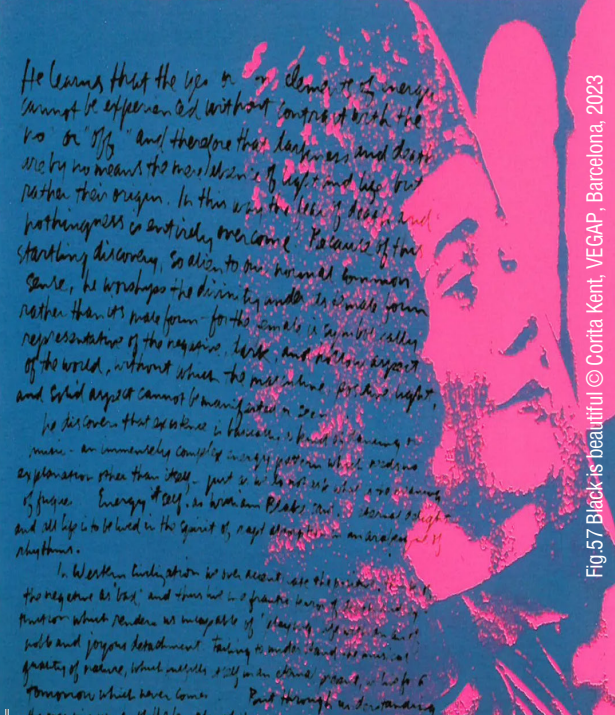 He learns that the yes or on elements of energy
cannot be experienced without contrast with the
no or "off" and therefore that darkness and death
are by no means the mere absence of light and life but
rather their origin. In this way the fear of death and
nothingness is entirely overcome. Because of this
startling discovery, so alien to our normal common
sense, he worships the divinity under its female form
rather than its male form - for the female is symbolically
representative of the negative, dark, and hollow aspect
of the world, without which the masculine, positive, light,
and solid aspect cannot be manifested or seen
he discovers that existence is basically a kind of dancing or
music - an immensely complex energy pattern which needs no
explanation other than itself - just as we do not ask what is the meaning
of fugues Energy itself, as William Blake said, is eternal delight
and all life is to be lived in the spirit of rapt absorption in an arabesque of
rhythms.
In Western Civilization we over accent the positive, think of
the negative as "bad," and thus live in a frantic terror of death and
which renders us incapable of "playing" life with an
noble and joyous detachment. Failing to understand the musical
quality of nature, which fulfills itself in an eternal present, we live for a
tomorrow which never comes But through understanding
Fig.57 Black is beautiful © Corita Kent, VEGAP, Barcelona, 2023